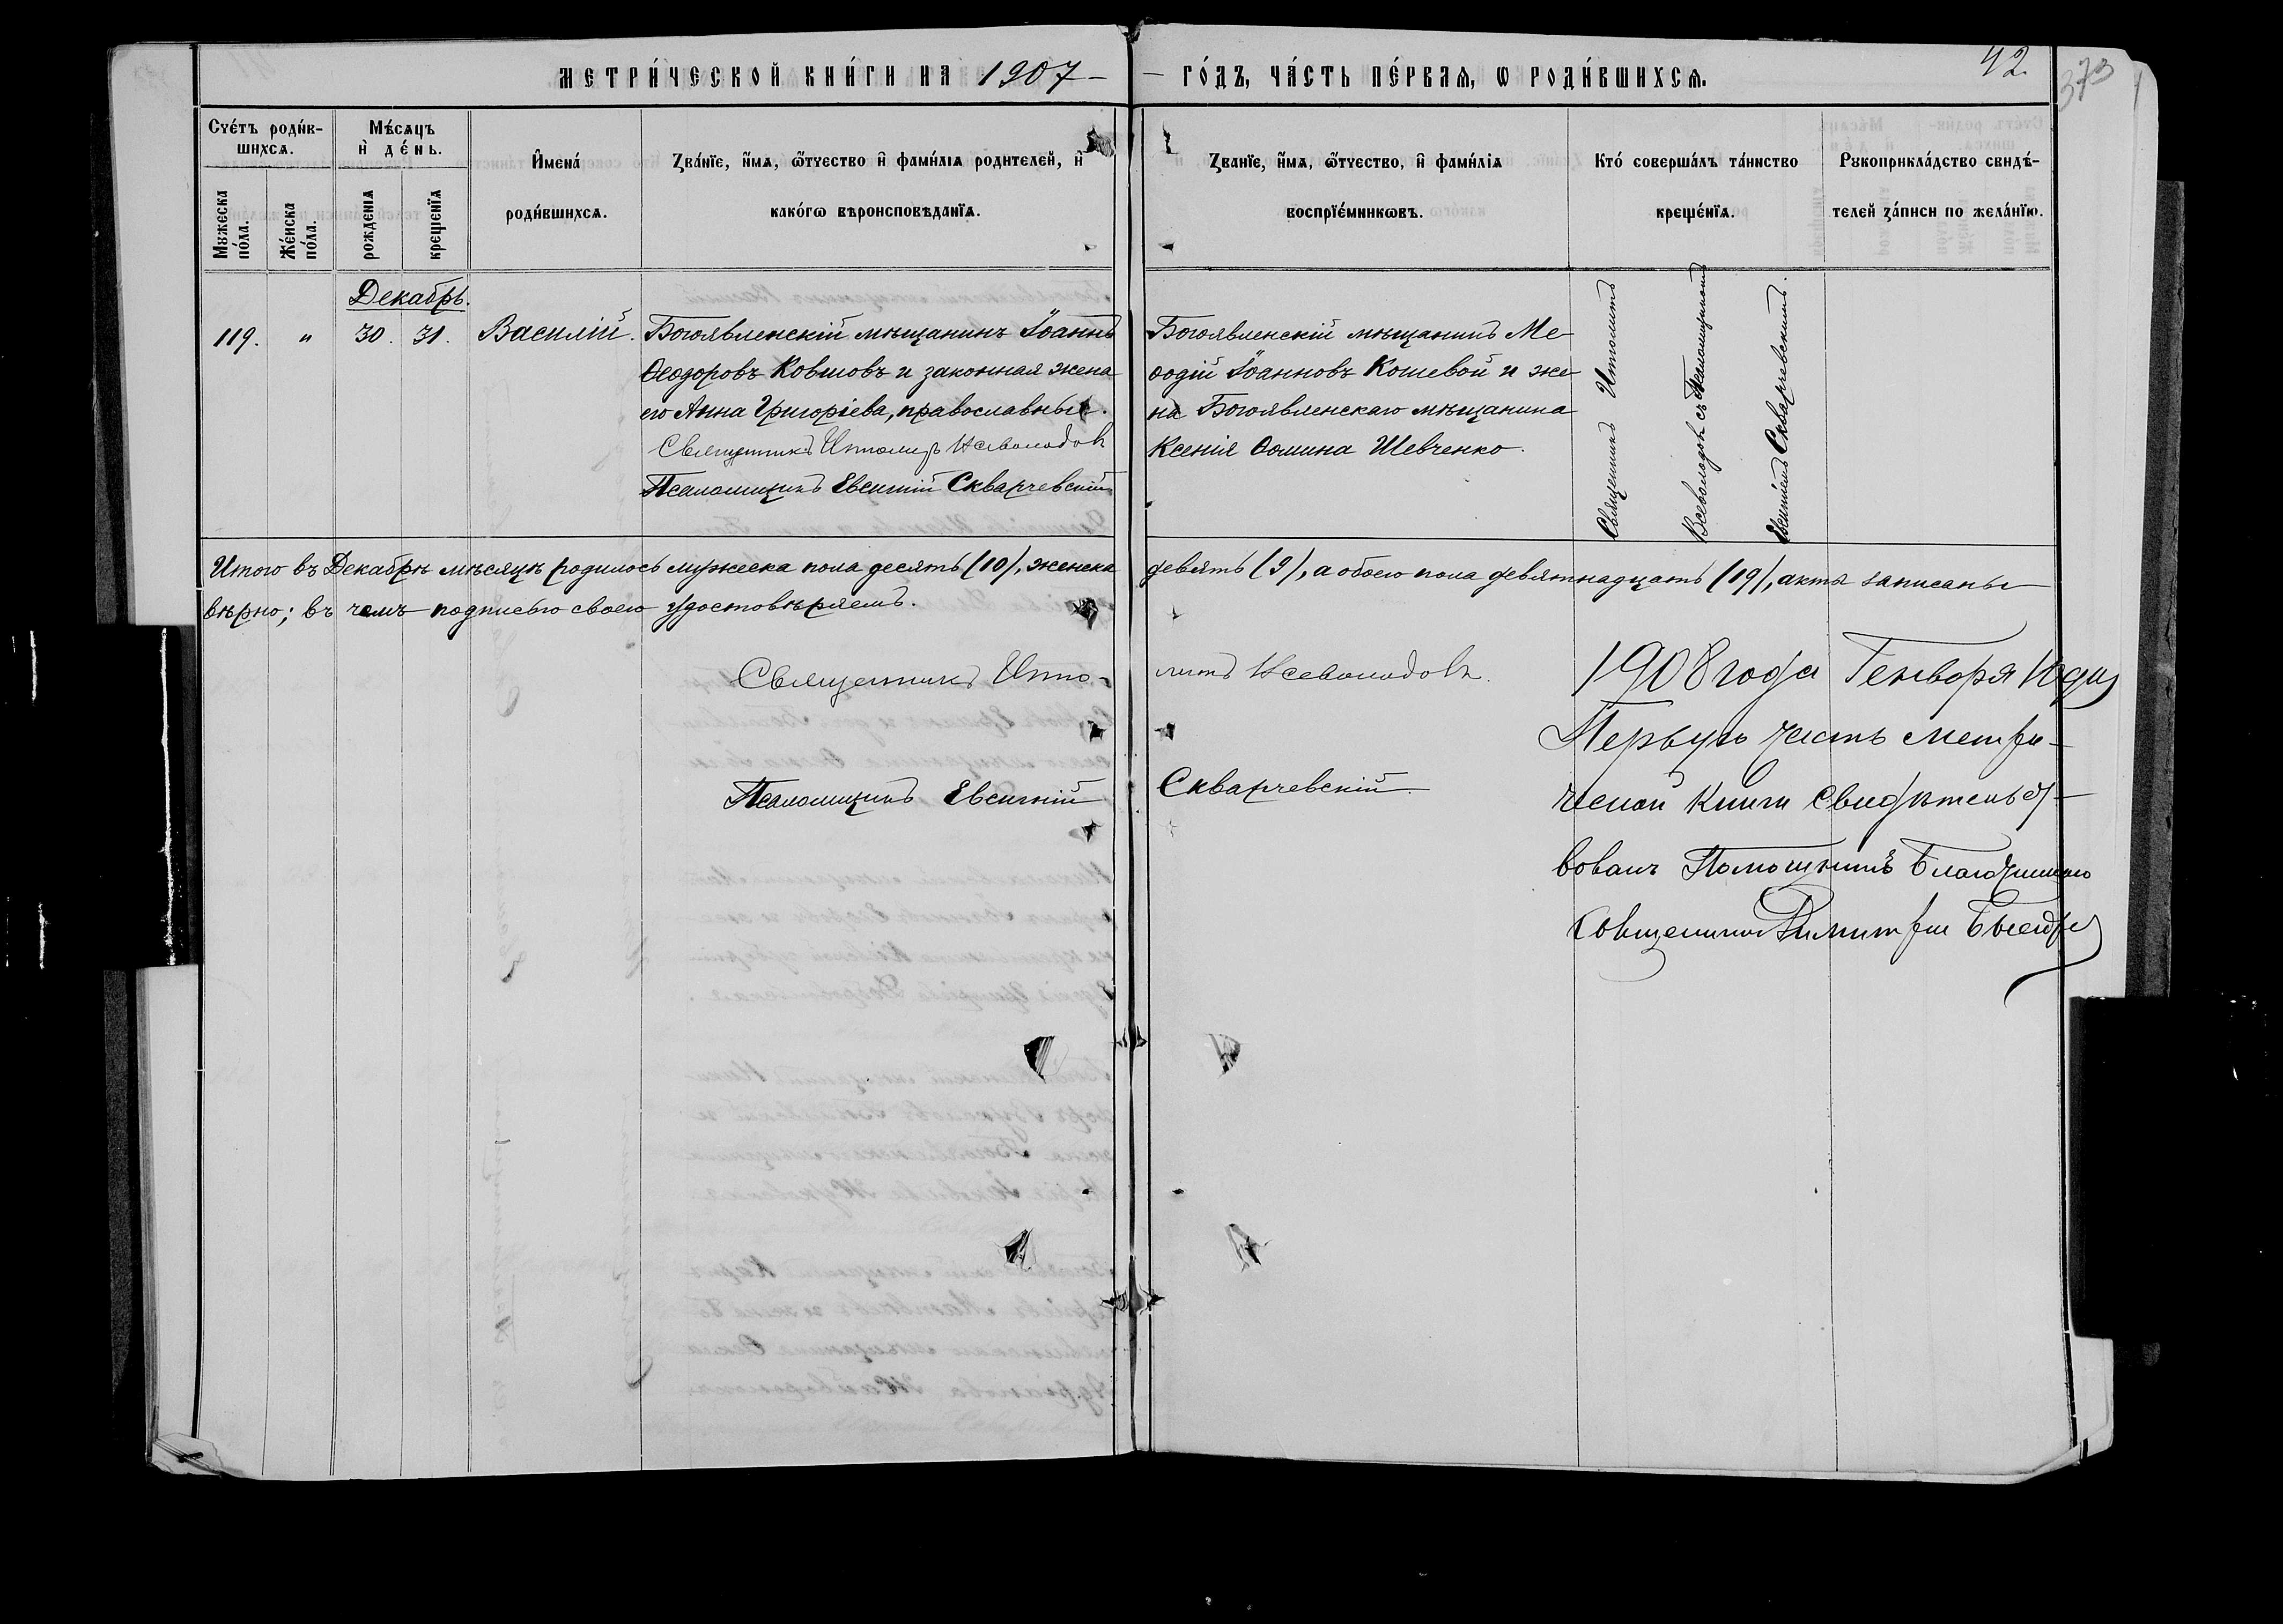 МЕТРИ́ЧЕСКОЙ КНИ́ГИ НА 1907 –
– ГО́ДЪ, ЧА́СТЬ ПЕ́РВАЯ, Ѡ РОДИ́ВШИХСЯ.
42.
373
Сче́тъ роди́в-
шихся.
Мѣ́сяцъ
и де́нь.
Мꙋжеска
по́ла.
Же́нска
по́ла.
рожденїя
крещенїя
И҆мена́
роди́вшихся.
Зва́нїе, и҆́мя, ѻ҆́тчество и҆ фами́лїя родителей, и҆
како́гѡ вѣроисповѣданїя.
Зва́нїе, и҆́мя, ѻ҆́тчество, и҆ фами́лїя
воспрїе́мниковъ.
Кто́ соверша́лъ та́инство
креще́нїя.
Рꙋкоприкла́дство свидѣ́-
телей за́писи по жела́нїю.
Декабрь.
119. " 30. 31. Василій.
Богоявленскій мѣщанинъ Іоаннъ
Ѳеодоровъ Ковшовъ и законная жена
его Анна Григоріева, православные.
Священникъ Ипполитъ Всеволодовъ
Псаломщикъ Евсигній Скварчевскій
Богоявленскій мѣщанинъ Ме-
ѳодій Іоанновъ Кошевой и же-
на Богоявленскаго мѣщанина
Ксенія Ѳомина Шевченко.
Священникъ Ипполитъ
Всеволодовъ съ Псаломщикомъ
Евсигніемъ Скварчевскимъ.
Итого въ Декабрѣ мѣсяцѣ родилось мужеска пола десять (10), женска девять (9), а обоего пола девятнадцать (19), акты записаны
вѣрно; въ чемъ подписью своею удостовѣряемъ.
Священникъ Иппо-
литъ Всеволодовъ.
Псаломщикъ Евсигній
Скварчевскій.
1908 года Генворя 10 дня
Первую часть метри-
ческой книги свидѣтельст-
вовалъ Помощникъ Благочиннаго
Священникъ Димитрій